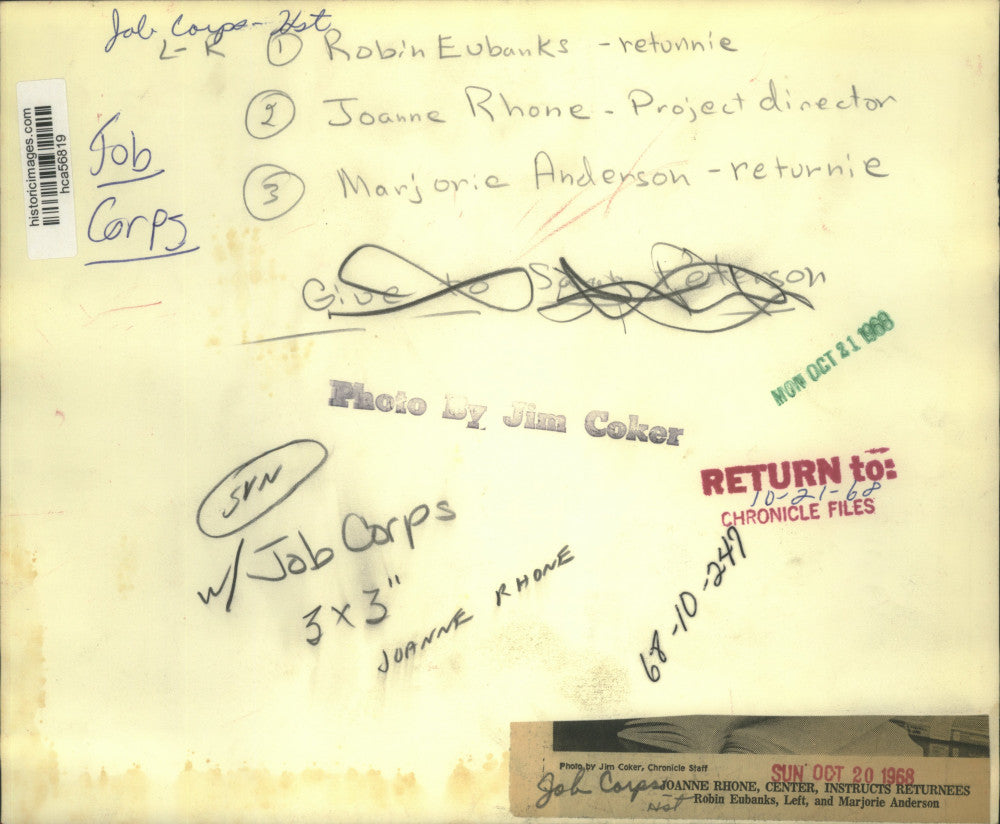 Job Corps - Hst
L - R ① Robin Eubanks - retunnie
② Joanne Rhone - Project director
③ Marjorie Anderson - returnie
historicimages.com
hca56819
Job
Corps
Give to Peterson
MON OCT 21 1968
Photo By Jim Coker
SUN
RETURN to:
10-21-68
CHRONICLE FILES
w/ Job Corps
3 x 3"
JOANNE RHONE
68-10-247
Photo by Jim Coker, Chronicle Staff
SUN OCT 20 1968
Job Corps
Hst
JOANNE RHONE, CENTER, INSTRUCTS RETURNEES
Robin Eubanks, Left, and Marjorie Anderson